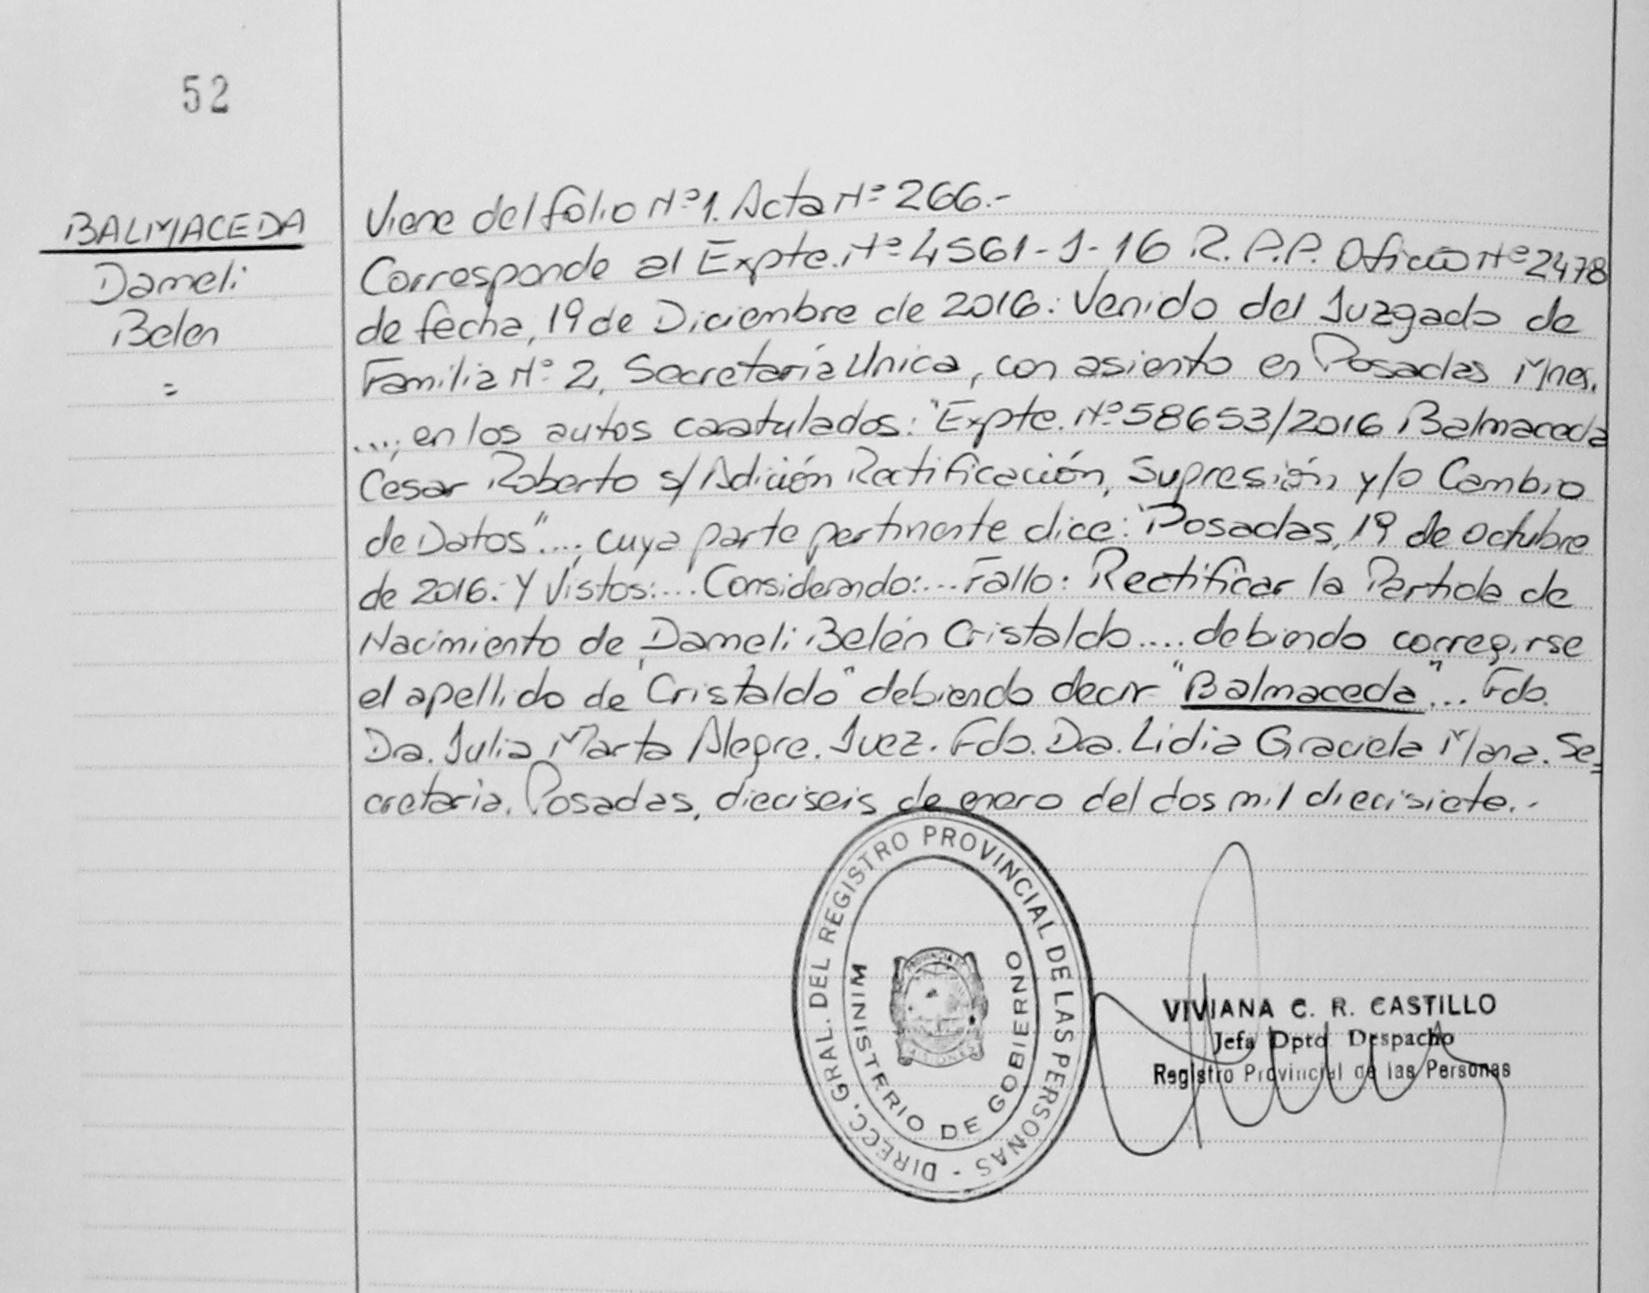 52
BALMACEDA
Dameli
Belen
=
Viene del folio Nº1. Acta Nº 266.-
Corresponde al Expte. Nº 4561-J-16 R.P.P. Oficio Nº 2478
de fecha, 19 de Diciembre de 2016: Venido del Juzgado de
Familia Nº 2, Secretaría Unica, con asiento en Posadas Mnes.
...; en los autos caratulados: "Expte. Nº 58653/2016 Balmaceda
César Roberto s/ Adición Rectificación, Supresión y/o Cambio
de Datos"...; cuya parte pertinente dice: "Posadas, 19 de octubre
de 2016: Y Vistos:... Considerando:... Fallo: Rectificar la Partida de
Nacimiento de Dameli Belén Cristaldo.... debiendo corregirse
el apellido de "Cristaldo" debiendo decir "Balmaceda"... Fdo.
Dra. Julia Marta Alegre. Juez. Fdo. Dra. Lidia Graciela Mara. Se=
cretaria. Posadas, dieciseis de enero del dos mil diecisiete.-
DIRECC. GRAL. DEL REGISTRO PROVINCIAL DE LAS PERSONAS -
MINISTERIO DE GOBIERNO
PROVINCIA DE
MISIONES
VIVIANA C. R. CASTILLO
Jefa Dpto Despacho
Registro Provincial de las Personas